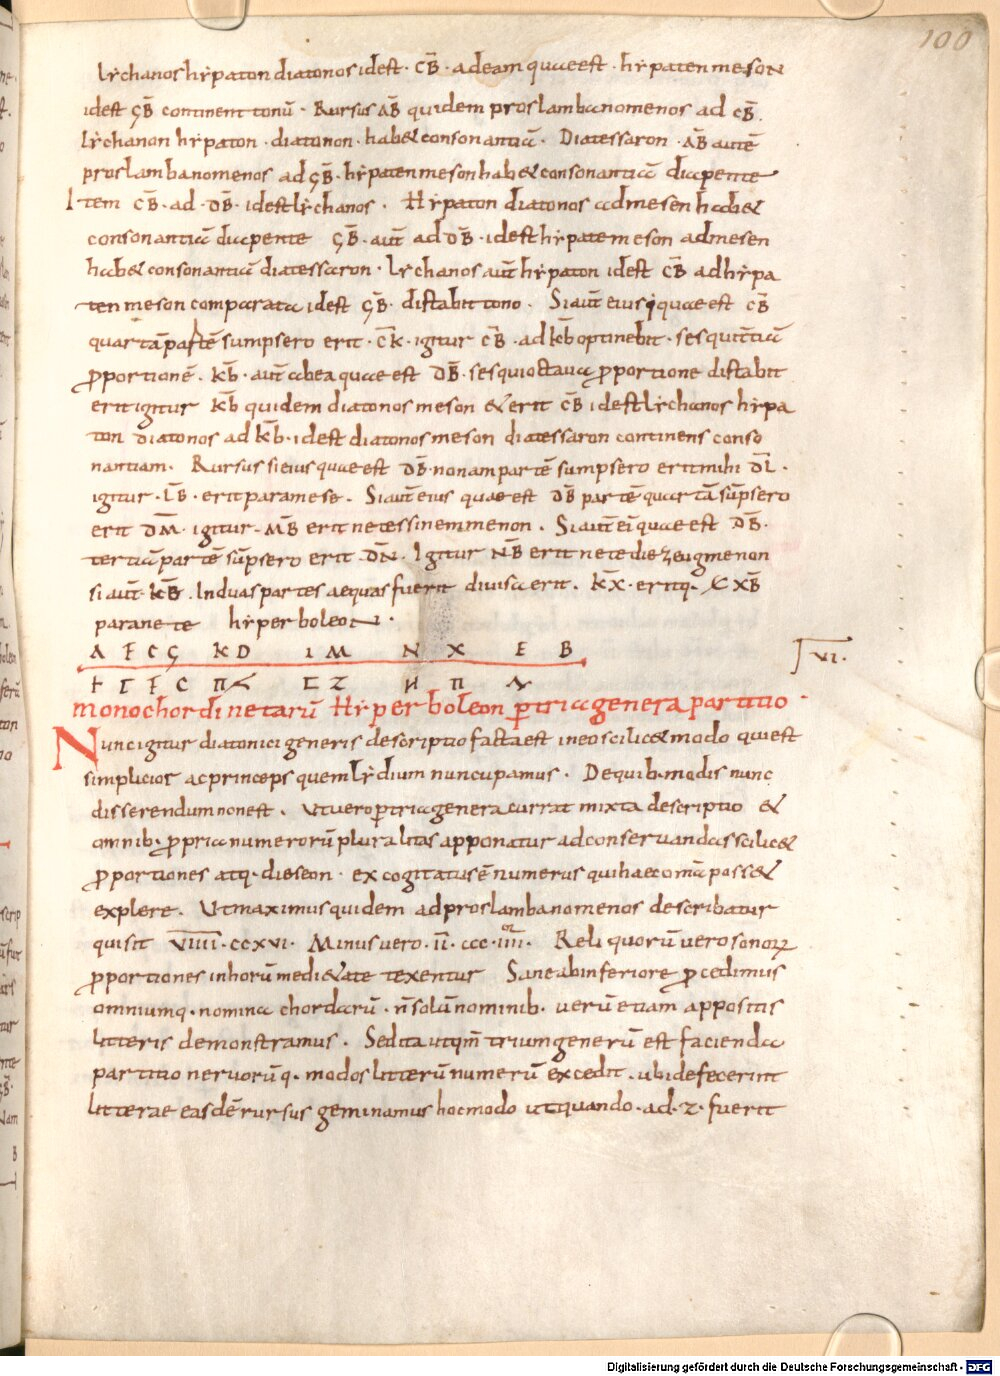 100
lychanos hypaton diatonos idest · cb̄ · adeam quae est · hypaten meson
idest çb̄ continent tonū · Rursus ab̄ quidem proslambanomenos ad cb̄.
lychanon hypaton · diatonon · hab& consonantiā · Diatessaron · ab̄ autē
proslambanomenos ad çb̄ · hypaten meson hab& consonantiā diapente
Item cb̄ · ad · db̄ · idest lychanos · Hypaton diatonos admesen hab&
consonantiā diapente çb̄ · aut̄ ad db̄ · idest hypate meson admesen
hab& consonantiā diatessaron · lychanos aut̄ hypaton idest cb̄ adhypa
ten meson comparata idest çb̄ · distabit tono · Si aut̄ eius quae est cb̄
quartā partē sumpsero erit · ck̄ · igitur cb̄ · ad kb̄ optinebit · sesquitertiā
proportionē · kb̄ · aut̄ abea quae est db̄ · sesquioctaua proportione distabit
erit igitur kb̄ quidem diatonos meson & erit cb̄ idest lychanos hypa
ton diatonos ad kb̄ · idest diatonos meson diatessaron continens conso
nantiam · Rursus si eius quae est db̄ · nonam partē sumpsero erit mihi dl̄ ·
igitur · lb̄ · erit paramese · Si aut̄ eius quae est db̄ partē quartā sūpsero
erit dm̄ · igitur · mb̄ erit nete ssinemmenon · Si aut̄ ei quae est db̄ ·
tertiā partē sūpsero erit dn̄ · Igitur nb̄ erit nete diezeugmenon
si aut̄ · kb̄ · In duas partes aequas fuerit diuisa erit · kx̄ · eritq · & xb̄
paranete hyperboleon ·
A F C Ç K D I M N X E B
VI.
monochordi netarū Hyperboleon p tria genera partitio
Nunc igitur diatonici generis descriptio facta est in eo scilic& modo qui est
simplicior ac princeps quem lydium nuncupamus · De quib · modis nunc
disserendum non est · Ut uero p tria genera currat mixta descriptio &
omnib · propria numerorū pluralitas apponatur ad conseruandas scilic&
proportiones atq · dieseon · excogitatus ē numerus qui haec om̄a poss&
explere · Ut maximus quidem ad proslambanomenos describatur
qui sit V̅I̅I̅I̅I̅ · ccxvi · Minus uero · ii · ccc · iiii · Reliquorū uero sonorꝝ
proportiones in horū medi&ate texentur Sane ab inferiore procedimus
omniumq · nomina chordarū · n̄ solū nominib · uerū etiam appositis
litteris demonstramus · Sed ita ut qm̄ trium generū est facienda
partitio neruorū q · modos litterū numerū excedit · ubi defecerint
litterae easdē rursus geminamus hoc modo ut quando · ad · z · fuerit
Digitalisierung gefördert durch die Deutsche Forschungsgemeinschaft - DFG